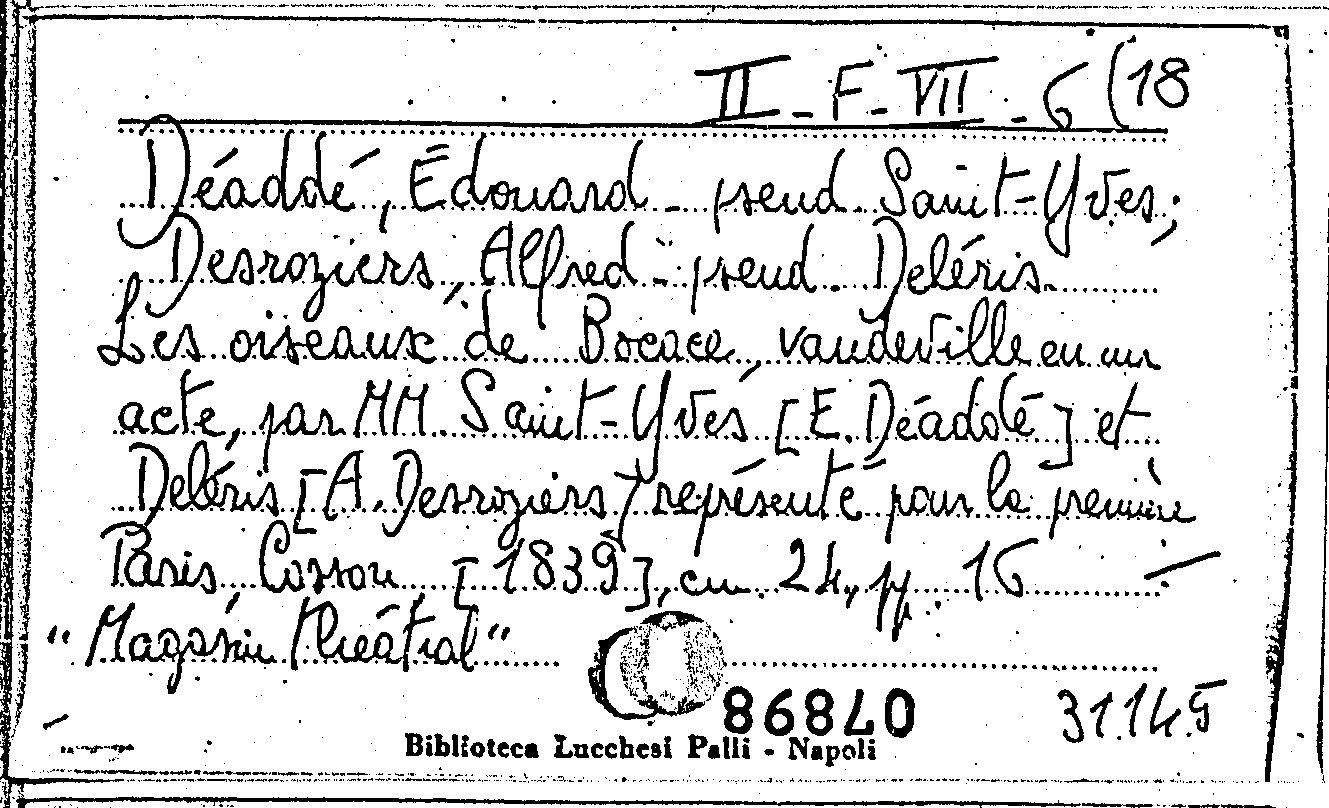 II - F - VII - 6 (18
Déaddé, Édouard - pseud. Saint-Yves;
Desroziers, Alfred - pseud. Deléris.
Les oiseaux de Bocace, vaudeville en un
acte, par MM. Saint-Yves [E. Déaddé] et
Deléris [A. Desroziers] représenté pour la première
Paris, Cosson, [1839], cm. 24, pp. 16
"Magasin théâtral"
86840
31.145
Biblioteca Lucchesi Palli - Napoli